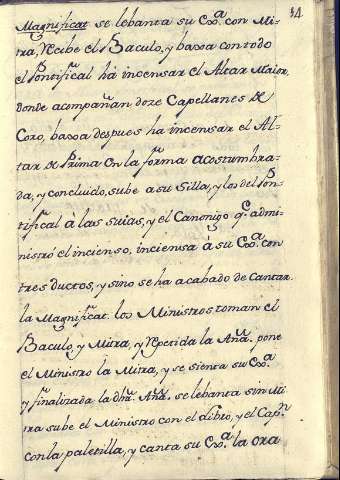 14
Magnificat se lebanta su Exª. con Mi-
tra, recibe el Baculo, y baxa con todo
el Pontifical hà incensar el Altar Maior,
donde acompañan doze Capellanes de
Coro, baxa despues ha incensar el Al-
tar de Prima en la forma acostumbra-
da, y concluido, sube a su Silla, y los del Pon-
tifical à las suias, y el Canonigo qe. admi-
nistró el incienso, inciensa à su Exª. con
tres ductos, y sino se ha acabado de Cantar
la Magnificat. los Ministros toman el
Baculo, y Mitra, y repetida la Anª. pone
el Ministro la Mitra, y se sienta su Exª.
y finalizada la dhª. Anª. se lebanta sin Mi
tra sube el Ministro con el libro, y el Capn.
con la paletilla, y canta su Exª. la ora